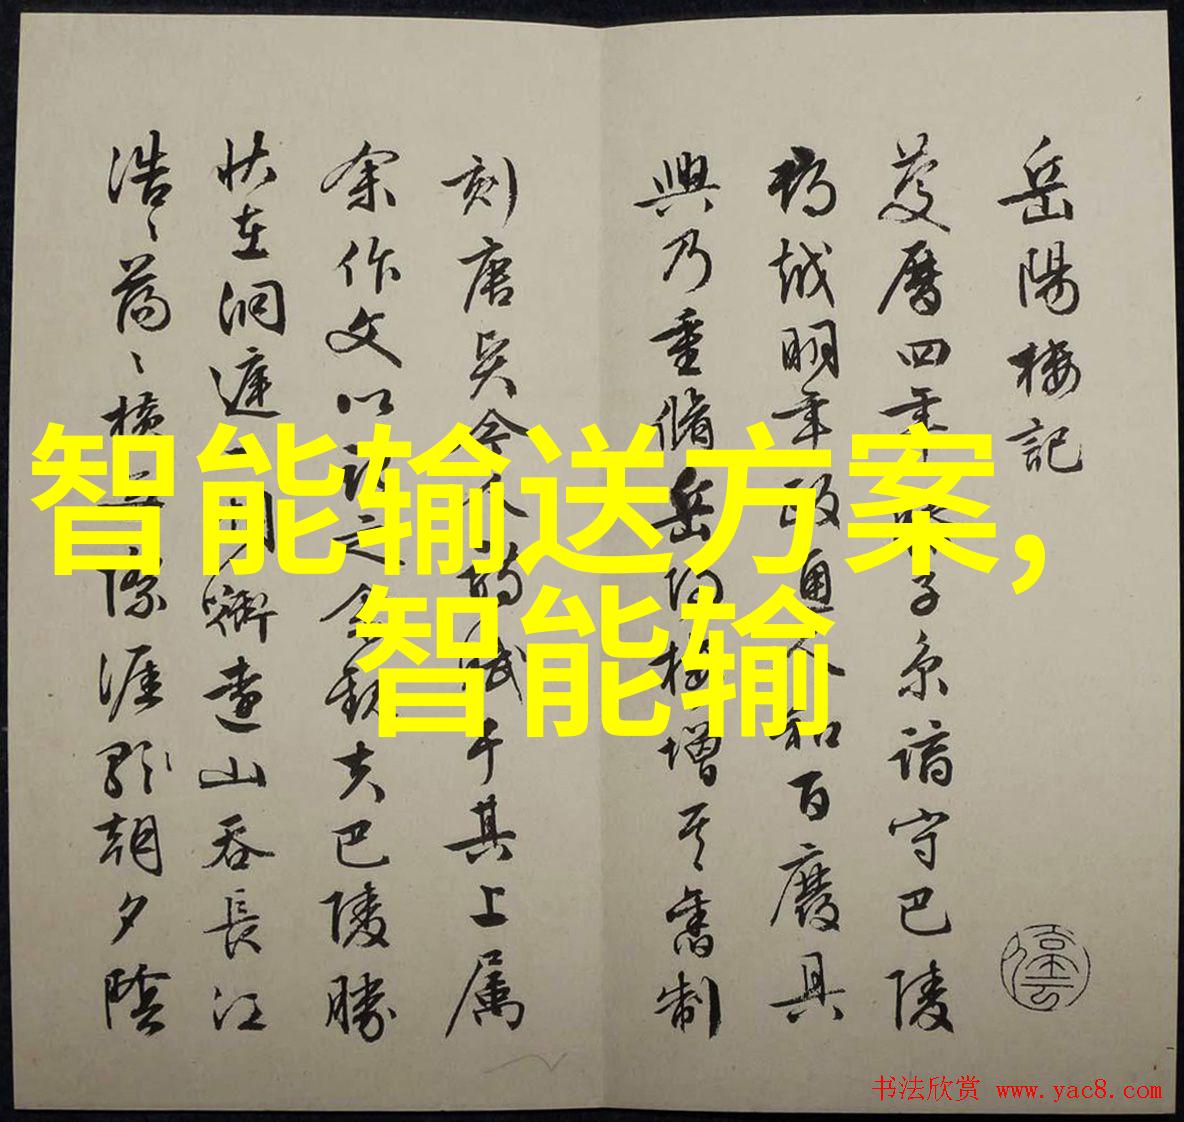 岳陽樓記
慶曆四年 子京謫守巴陵
郡越明年政通人和百廢具
興乃重脩岳陽樓增其舊制
刻唐 今人 賦于其上属
余作文以記之余觀夫巴陵勝
狀在洞庭一湖銜遠山吞長江
浩〻蕩〻橫無際涯 朝夕陰
智能输送方案,
智能输
书法欣赏 www.yac8.com